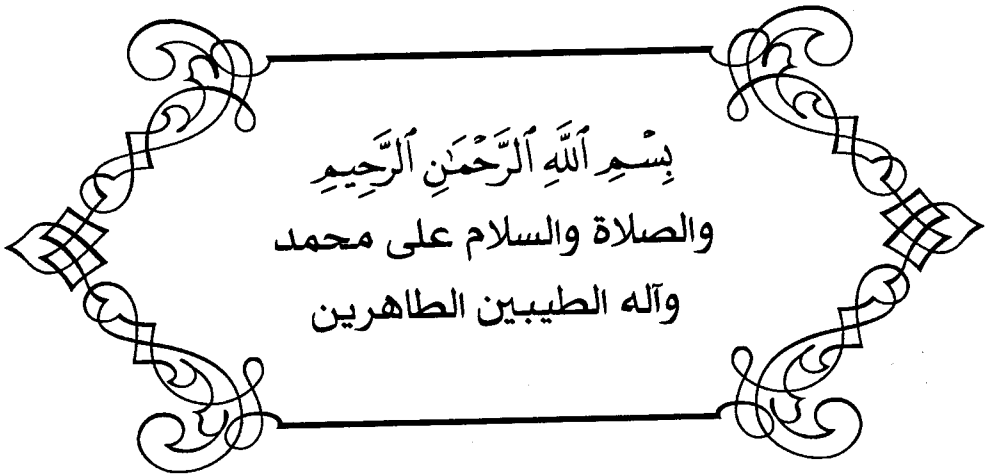 بِسْمِ ٱللَّهِ ٱلرَّحْمَٰنِ ٱلرَّحِيمِ
والصلاة والسلام على محمد
وآله الطيبين الطاهرين